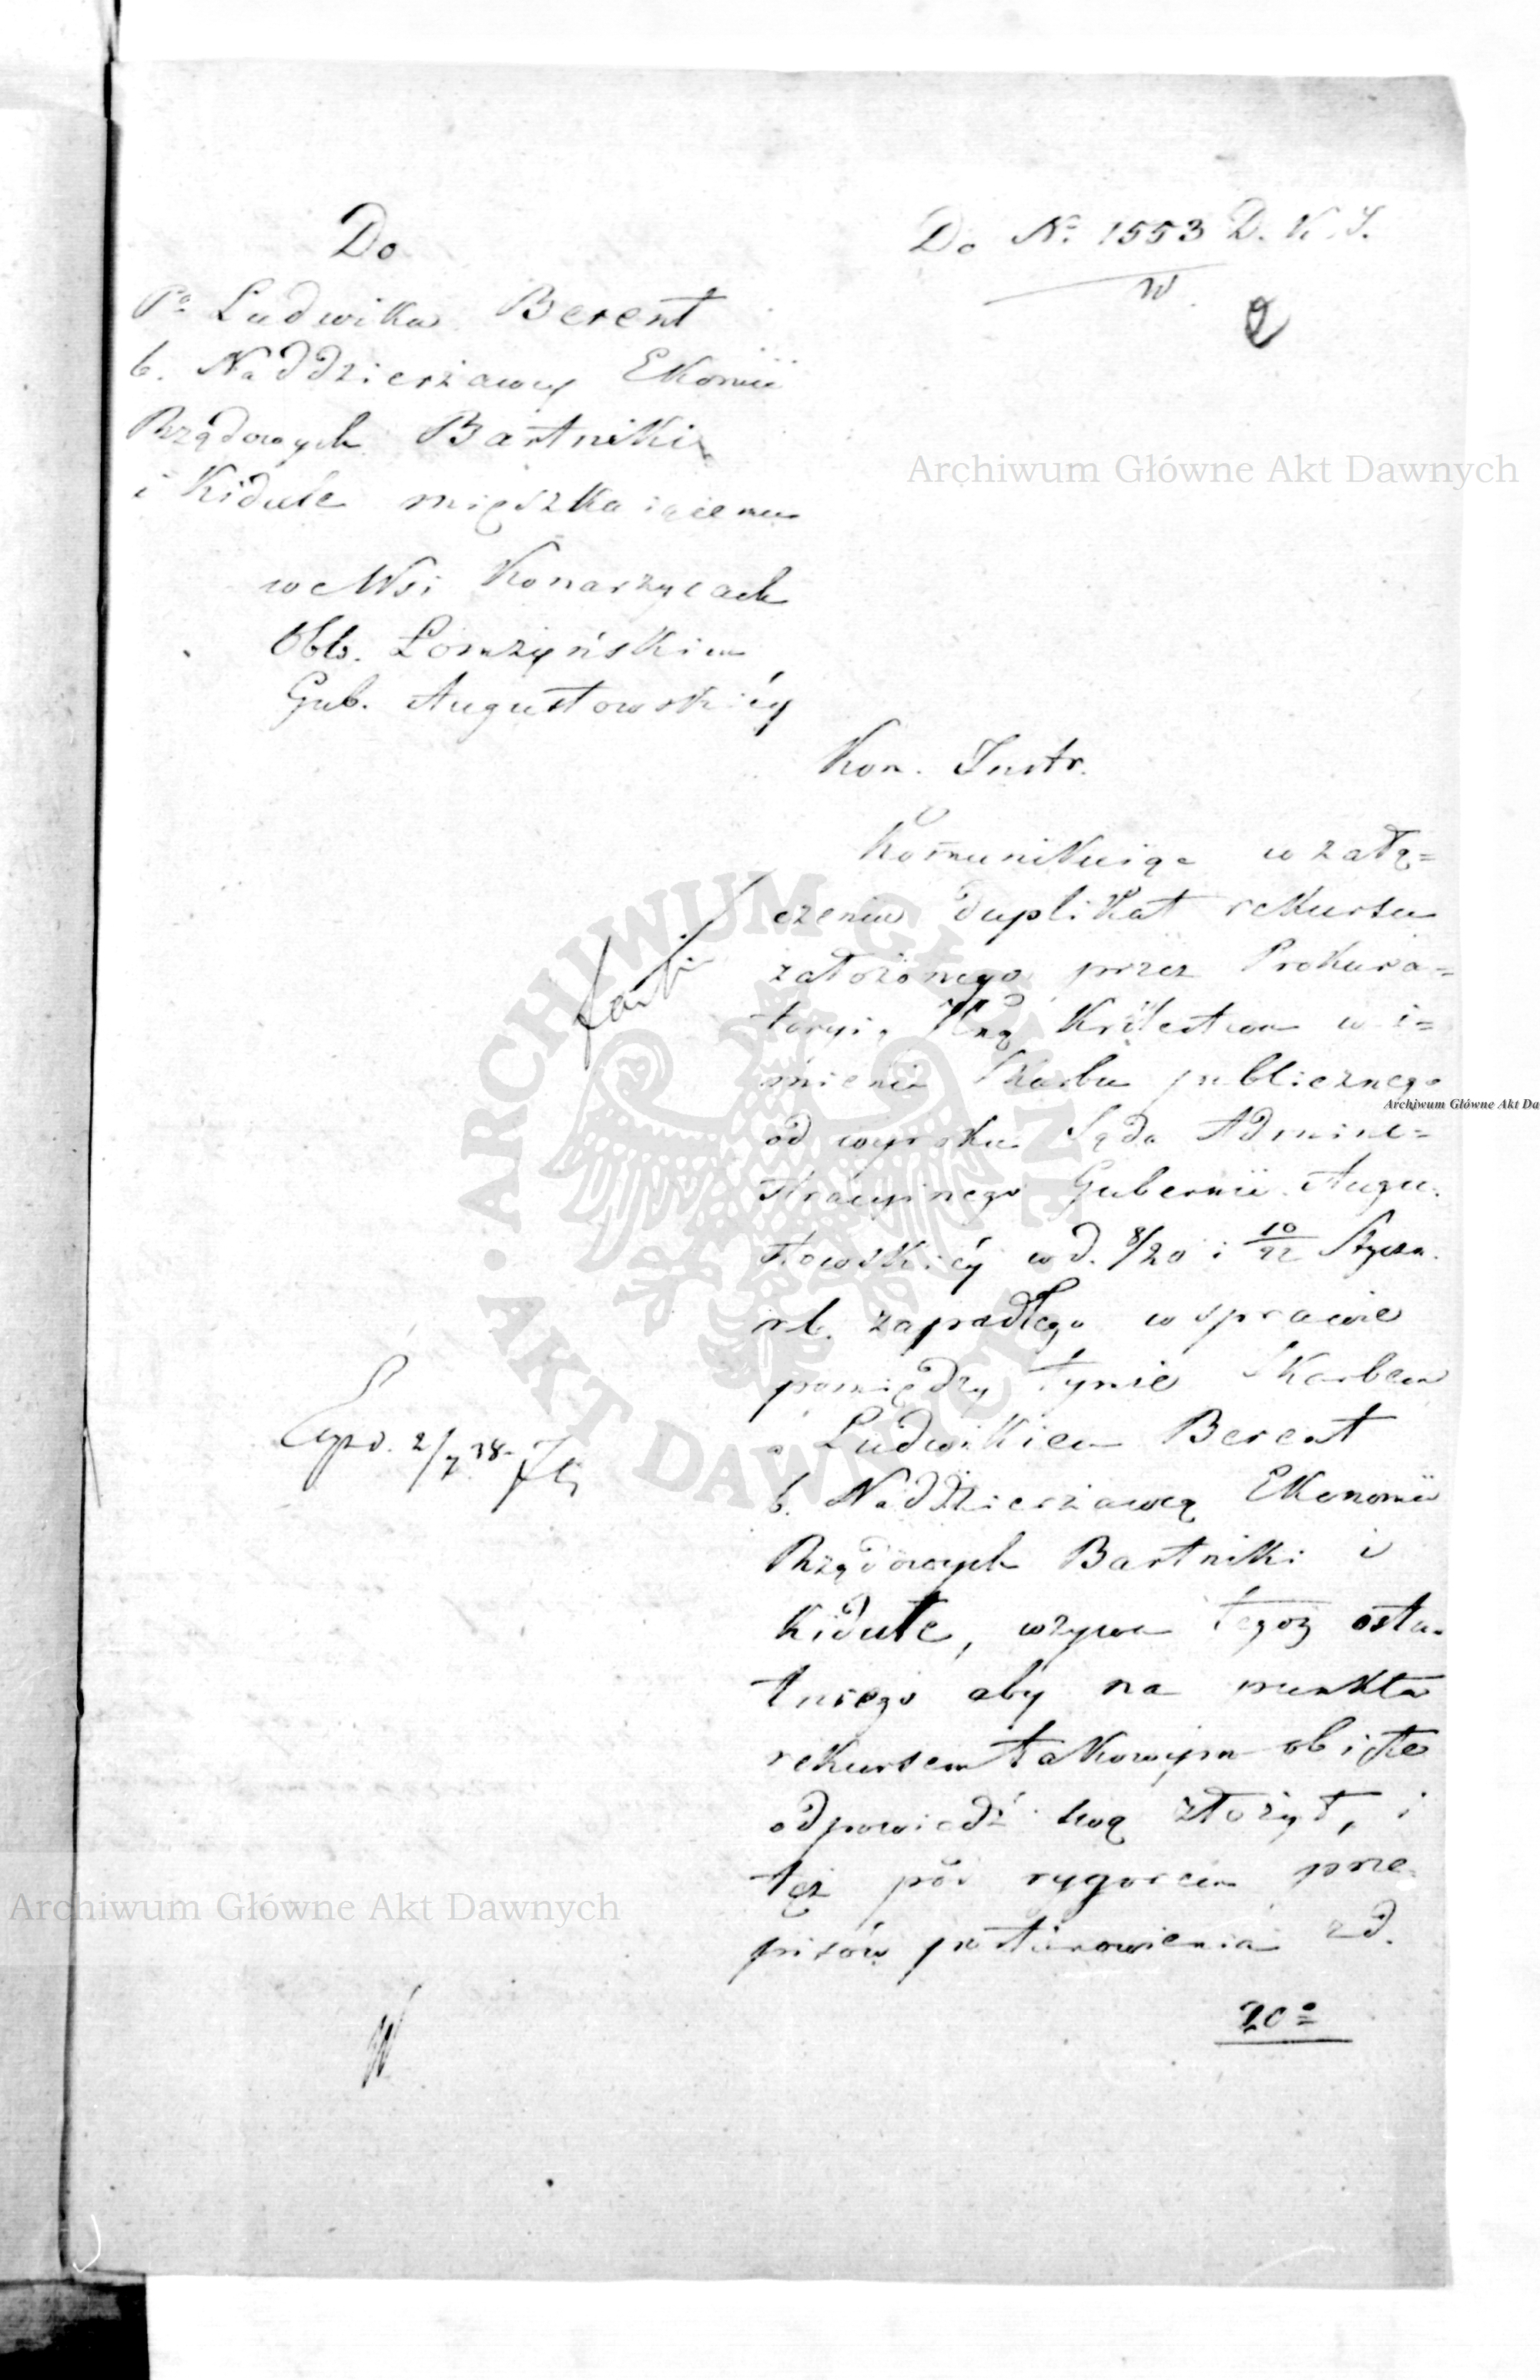 Do
Pa Ludwika Berent
b. Naddzierżawcy Ekonii
Rządowych Bartniki
i Kidule mięszkaiącemu
we Wsi Konarzycach
Obb. Łomżyńskim
Gub. Augustowskiéy
Do No. 1553 D. K. I.
W.
2
Kom. Instr.
Kom̄unikuiąc w załą=
czeniu duplikat rekursu
założonego przez Prokura=
toryią Król̄estwa w i=
mieniu Skarbu publicznego
od wyroku Sądu Admini=
stracyinego Gubernii Augu.
stowskiéy w d. 8/20 i 10/22 Stycz.
rb. zapadłego w sprawie
pomiędzy tymże Skarbem
a Ludwikiem Berent
b. Naddzierżawcą Ekonomii
Rządowych Bartniki i
Kidule, wzywa tegoż osta.
tniego aby na punkta
rekursem takowym obięte
odpowiedź swą złożył, i
też pod rygorem prze
pisów postanowienia z d.
Expd. 2/7 38
Archiwum Główne Akt Dawnych
Archiwum Główne Akt Da
ARCHIWUM GŁÓWNE AKT DAWNYCH
Archiwum Główne Akt Dawnych